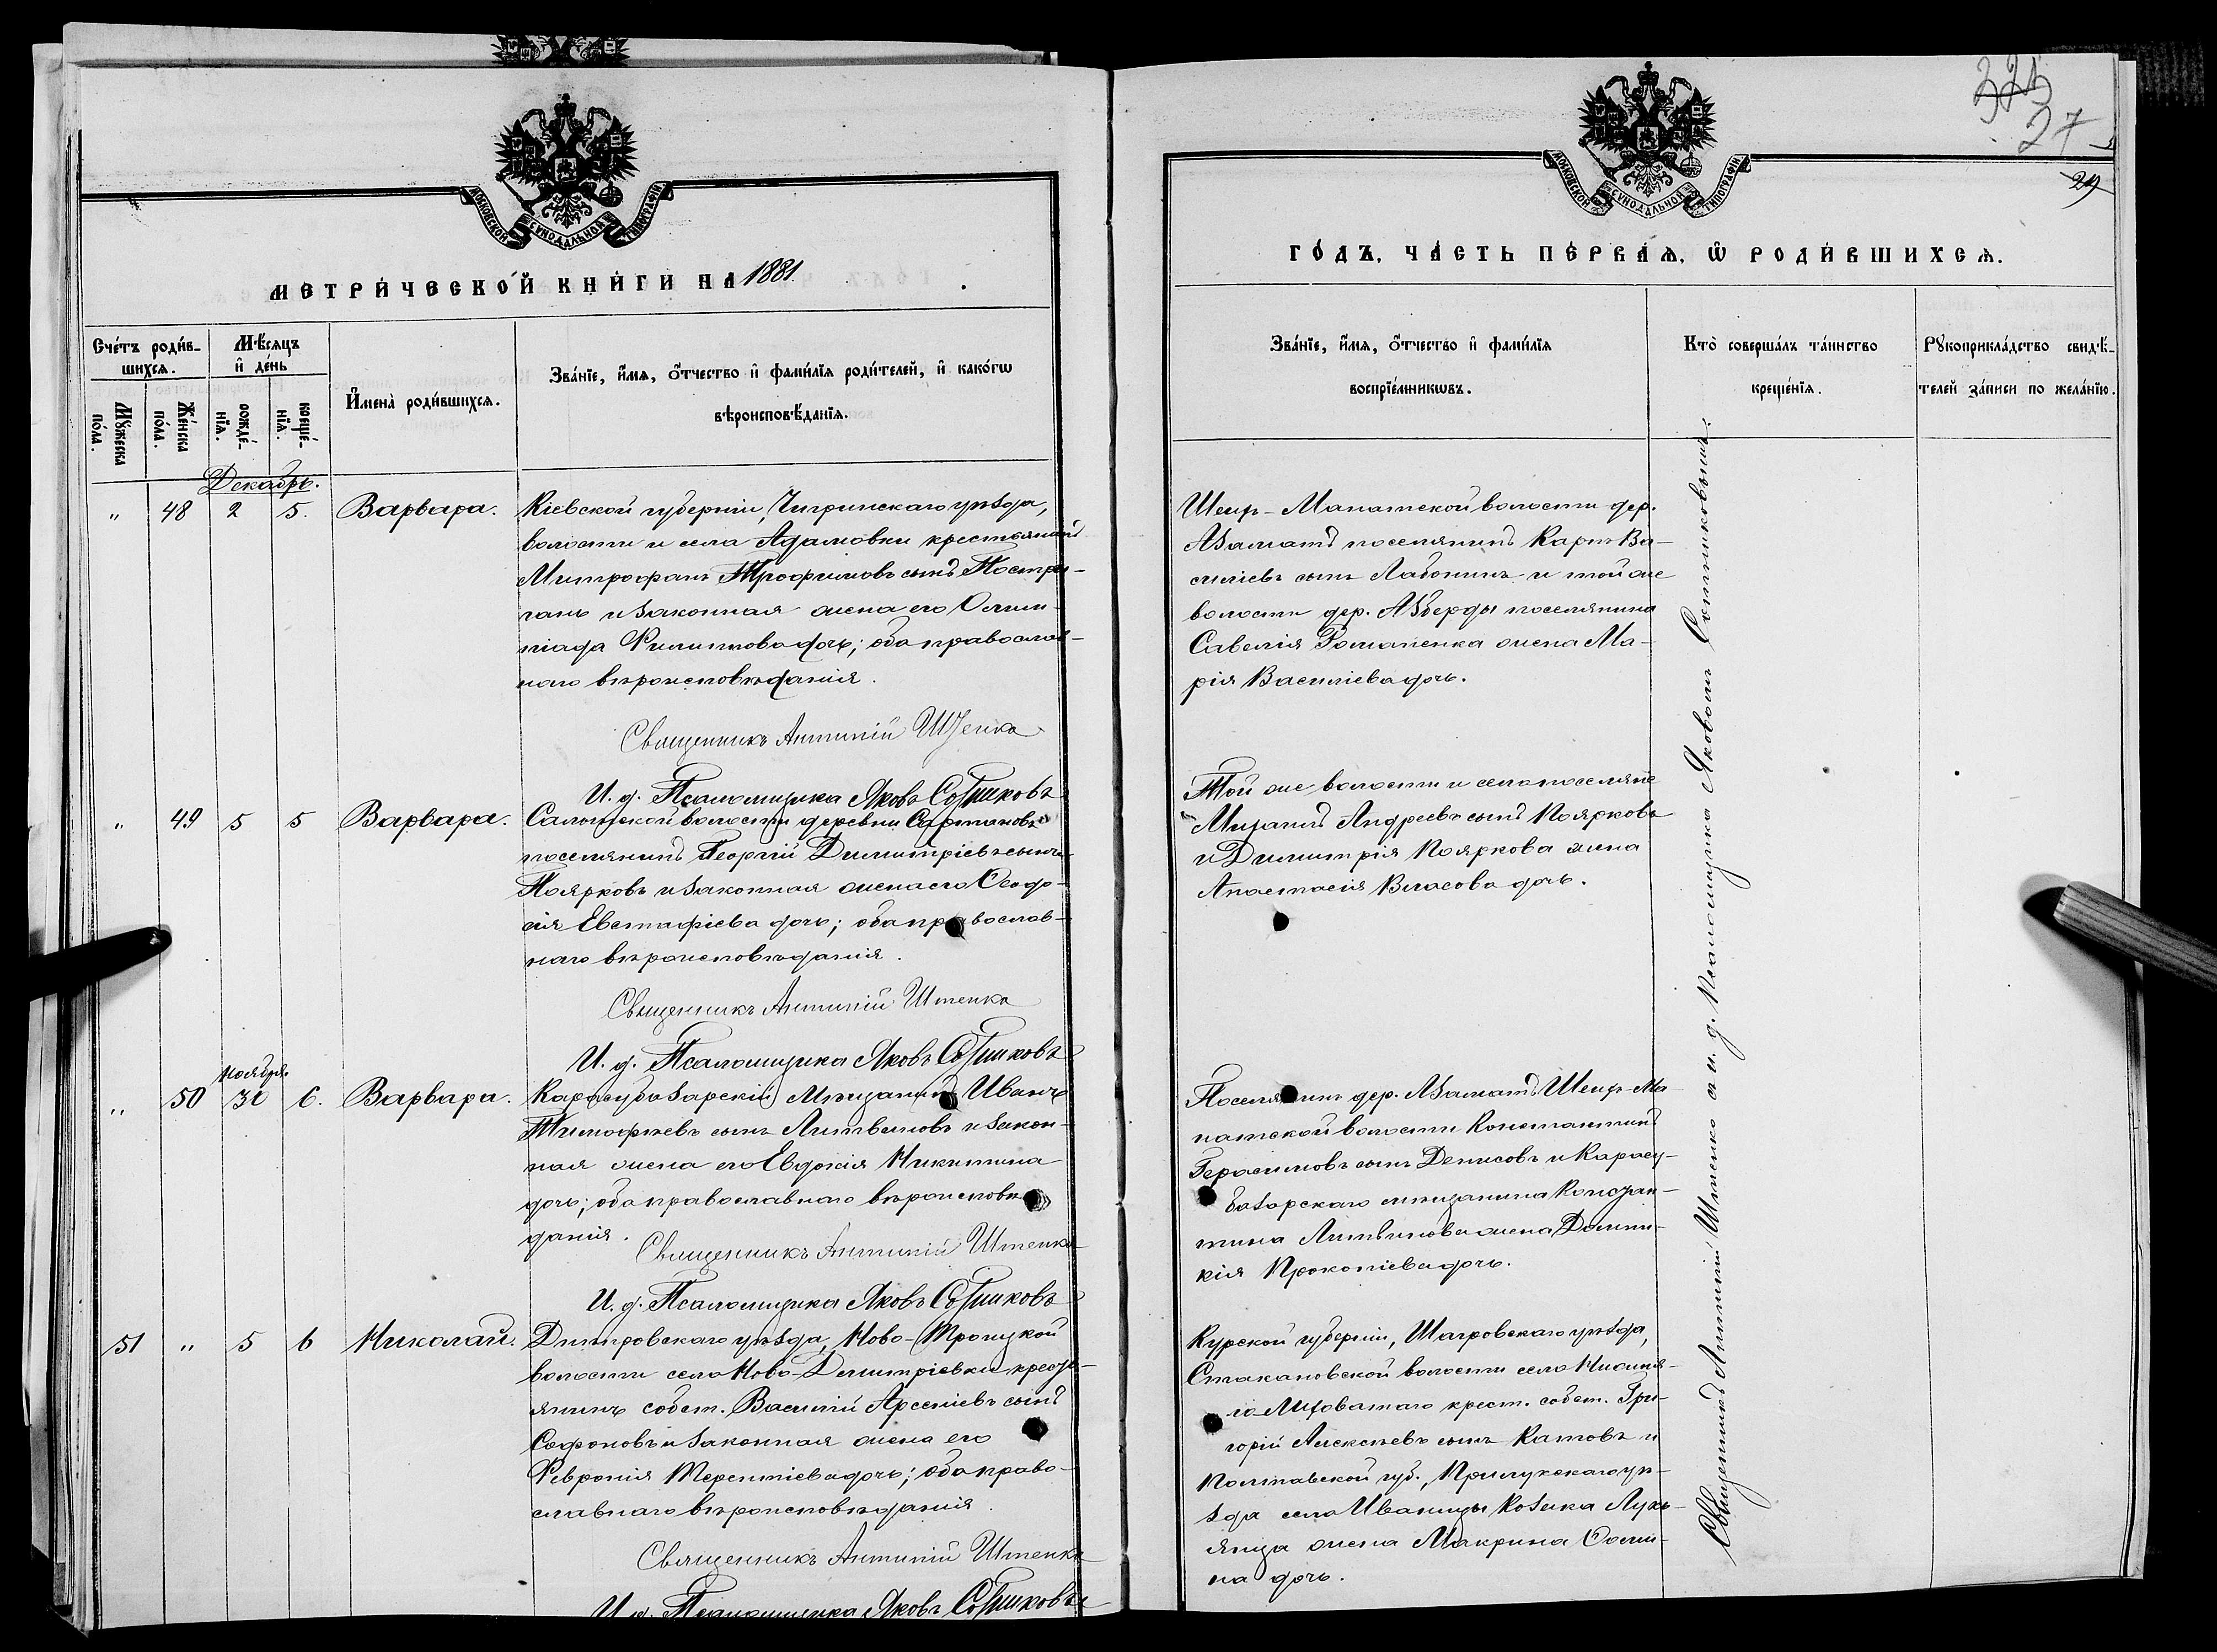 МОСКОВСКОЙ СУНОДАЛЬНОЙ ТИПОГРАФІИ
МЕТРИ́ЧЕСКОЙ КНИ́ГИ НА 1881.
Сче́тъ роди́в-
шихсѧ.
Мѣ́сѧцъ
и҆ де́нь
Мꙋ́жеска
по́ла.
Же́нска
по́ла.
рожде́-
нїѧ.
креще́-
нїѧ.
И҆мена̀ роди́вшихсѧ.
Зва́нїе, и҆́мѧ, ѻ҆́тчество и҆ фами́лїѧ роди́телей, и҆ како́гѡ
вѣроисповѣ́данїѧ.
Декабрь.
„ 48 2 5. Варвара. Кіевской губерніи, Чигринскаго уѣзда,
волости и села Адамовки крестьянинъ
Митрофанъ Трофимовъ сынъ Постри-
ганъ и законная жена его Олим-
піада Филиппова дочь; оба православ-
наго вѣроисповѣданія.
Священникъ Антипій Штенко
И. д. Псаломщика Яковъ Сотниковъ
„ 49 5 5 Варвара. Салынской волости деревни Сартановъ
поселянинъ Георгій Димитріевъ сынъ
Поярковъ и законная жена его Ѳеодо-
сія Евстафіева дочь; оба православ-
наго вѣроисповѣданія.
Священникъ Антипій Штенко
И. д. Псаломщика Яковъ Сотниковъ
Ноября.
„ 50 30 6. Варвара. Карасубазарскій Мѣщанинъ Иванъ
Тимофѣевъ сынъ Литвиновъ и закон-
ная жена его Евдокія Никитина
дочь; оба православнаго вѣроисповѣ-
данія.
Священникъ Антипій Штенко
И. д. Псаломщика Яковъ Сотниковъ
51 „ 5 6 Николай. Днѣпровскаго уѣзда, Ново-Троицкой
волости села Ново-Димитріевки кресть-
янинъ собст. Василій Арсеніевъ сынъ
Софоновъ и законная жена его
Февронія Терентіева дочь; оба право-
славнаго вѣроисповѣданія.
Священникъ Антипій Штенко
И. д. Псаломщика Яковъ Сотниковъ
27
29
МОСКОВСКОЙ СУНОДАЛЬНОЙ ТИПОГРАФІИ
ГО́ДЪ, ЧА́СТЬ ПЕ́РВАѦ, Ѽ РОДИ́ВШИХСѦ.
Зва́нїе, и҆́мѧ, ѻ҆́тчество и҆ фами́лїѧ
воспрїе́мникѡвъ.
Кто̀ соверша́лъ та́инство
креще́нїѧ.
Рꙋкоприкла́дство свидѣ́-
телей за́писи по жела́нїю.
Шеихъ-Монатской волости дер.
Азаматъ поселянинъ Карпъ Ва-
силіевъ сынъ Лабонинъ и той же
волости дер. Азберды поселянина
Савелія Романенка жена Ма-
рія Василіева дочь.
Той же волости и села поселяне
Михаилъ Андреевъ сынъ Поярковъ
и Димитрія Пояркова жена
Анастасія Власова дочь.
Поселянинъ дер. Азаматъ Шеихъ-Мо-
натской волости Константинъ
Герасимовъ сынъ Денисовъ и Карасу-
базарскаго мѣщанина Констан-
тина Литвинова жена Домни-
кія Прокопіева дочь.
Курской губерніи, Щигровскаго уѣзда,
Стакановской волости села Нижня-
го крест. собст. Гри-
горій Алексѣевъ сынъ Катовъ и
Полтавской губ., Прилукскаго уѣ-
зда села Иваницы Козака Лукь-
янца жена Макрина Ѳоми-
на дочь.
Священникъ Антипій Штенко и и. д. Псаломщика Яковомъ Сотниковымъ.